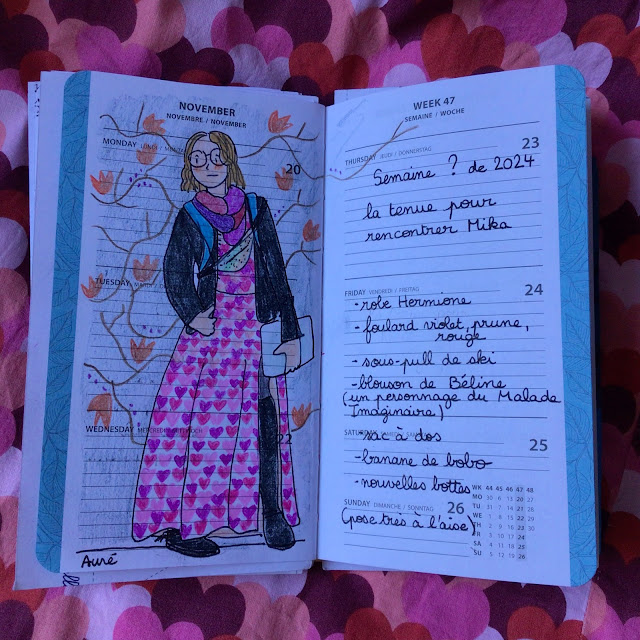 NOVEMBER
NOVEMBRE / NOVEMBER
MONDAY LUNDI
20
TUESDAY
WEDNESDAY
22
Auré
WEEK 47
SEMAINE / WOCHE
THURSDAY JEUDI / DONNERSTAG
23
Semaine ? de 2024
la tenue pour
rencontrer Mika
FRIDAY VENDREDI / FREITAG
24
- robe Hermione
- foulard violet, prune,
rouge
- sous-pull de ski
- blouson de Béline
(un personnage du Malade
Imaginaire)
SATURDAY
25
- sac à dos
- banane de bobo
- nouvelles bottes
SUNDAY DIMANCHE / SONNTAG
26
(pose très à l'aise)
WK 44 45 46 47 48
MO 30 6 13 20 27
TU 31 7 14 21 28
WE 1 8 15 22 29
TH 2 9 16 23 30
FR 3 10 17 24
SA 4 11 18 25
SU 5 12 19 26